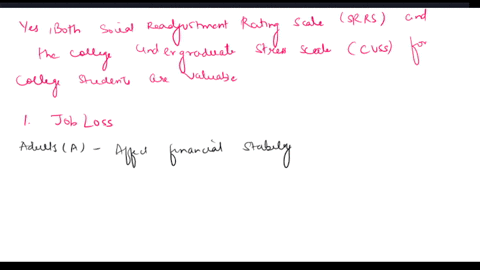 Yes, Both Social Readjustment Rating Scale (SRRS) and
the College Undergraduate Stress Scale (CUSS) for
College Students are valuable
1. Job Loss
Adults (A) - Affect financial Stability